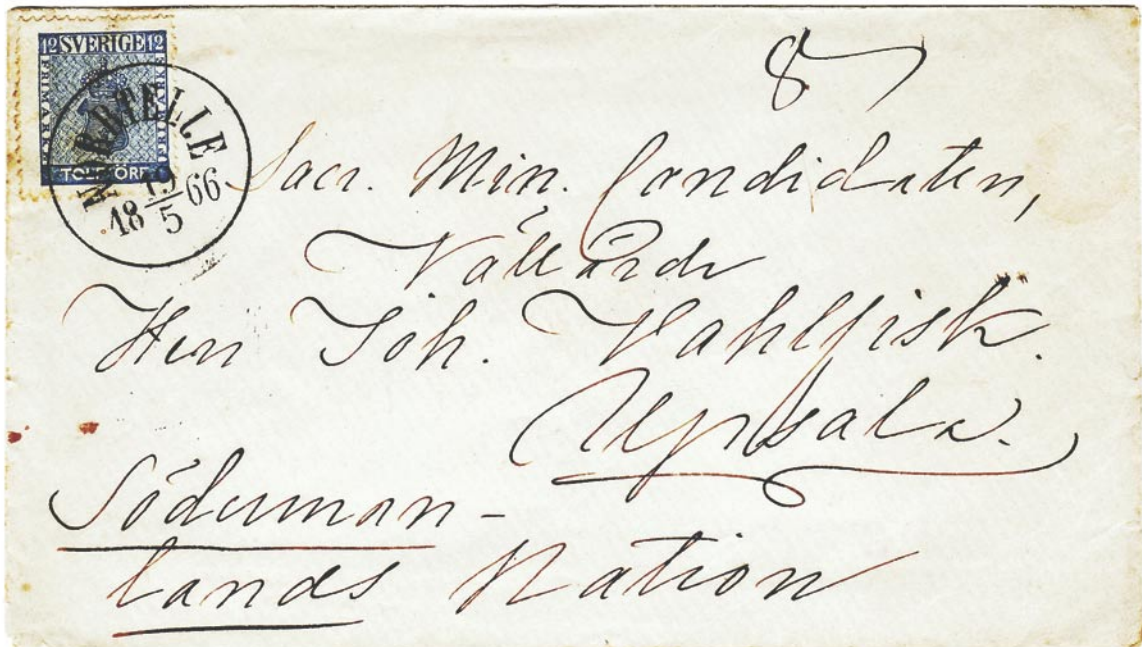 12 SVERIGE 12
FRIMÄRKE
TOLF ÖRE
NORRTELJE
18 5 66
8
Sacr. Min. Candidaten,
Välärade
Herr Joh. Wahlfisk.
Upsala.
Söderman-
lands Nation